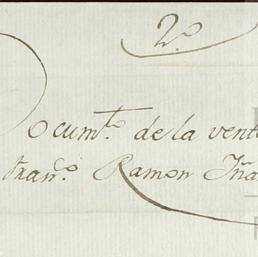 2.º
Documto. de la vent
Franco. Ramon Iña